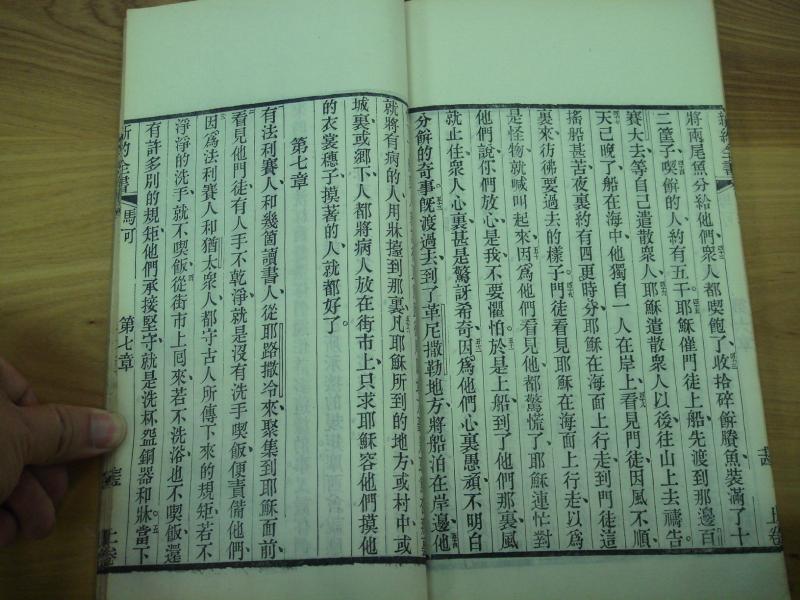 新約全書
將兩尾魚分給他們衆人都喫飽了、收拾碎餅賸魚裝滿了十
二筐子喫餅的人約有五千耶穌催門徒上船先渡到那邊百
賽大去等自己遣散衆人耶穌遣散衆人以後往山上去禱告。
天已晚了船在海中他獨自一人在岸上看見門徒因風不順、
搖船甚苦夜裏約有四更時分耶穌在海面上行走到門徒這
裏來彷彿要過去的樣子門徒看見耶穌在海面上行走以爲
是怪物就喊叫起來因爲他們看見他都驚慌了耶穌連忙對
他們說你們放心是我不要懼怕於是上船到了他們那裏風
就止住衆人心裏甚是驚訝希奇因爲他們心裏愚頑不明白
分餅的奇事旣渡過去到了革尼撒勒地方將船泊在岸邊他
上卷
就將有病的人用牀擡到那裏凡耶穌所到的地方或村中或
城裏或鄉下人都將病人放在街市上只求耶穌容他們摸他
的衣裳穗子摸著的人就都好了。
第七章
有法利賽人和幾箇讀書人從耶路撒冷來聚集到耶穌面前、
看見他門徒有人手不乾淨就是沒有洗手喫飯便責備他們、
因爲法利賽人和猶太衆人都守古人所傳下來的規矩若不
淨淨的洗手就不喫飯從街市上囘來若不洗浴也不喫飯還
有許多別的規矩他們承接堅守就是洗杯盌銅器和牀當下
新約全書
馬可
第七章
上卷